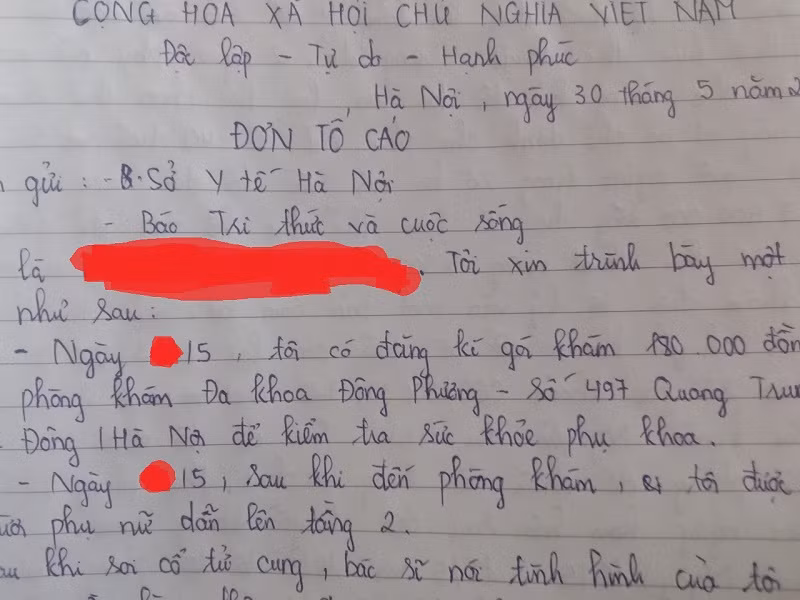 CỘNG HÒA XÃ HỘI CHỦ NGHĨA VIỆT NAM
Độc lập - Tự do - Hạnh phúc
, Hà Nội, ngày 30 tháng 5 năm 2
ĐƠN TỐ CÁO
gửi : - Sở Y tế Hà Nội
- Báo Tri thức và cuộc sống
là . Tôi xin trình bày một
như sau :
- Ngày 15, tôi có đăng kí gói khám 180.000 đồn
phòng khám Đa khoa Đông Phương - Số 497 Quang Trun
Đông / Hà Nội để kiểm tra sức khỏe phụ khoa.
- Ngày 15, sau khi đến phòng khám, tôi được
phụ nữ dẫn lên tầng 2.
khi soi cổ tử cung, bác sĩ nói tình hình của tôi